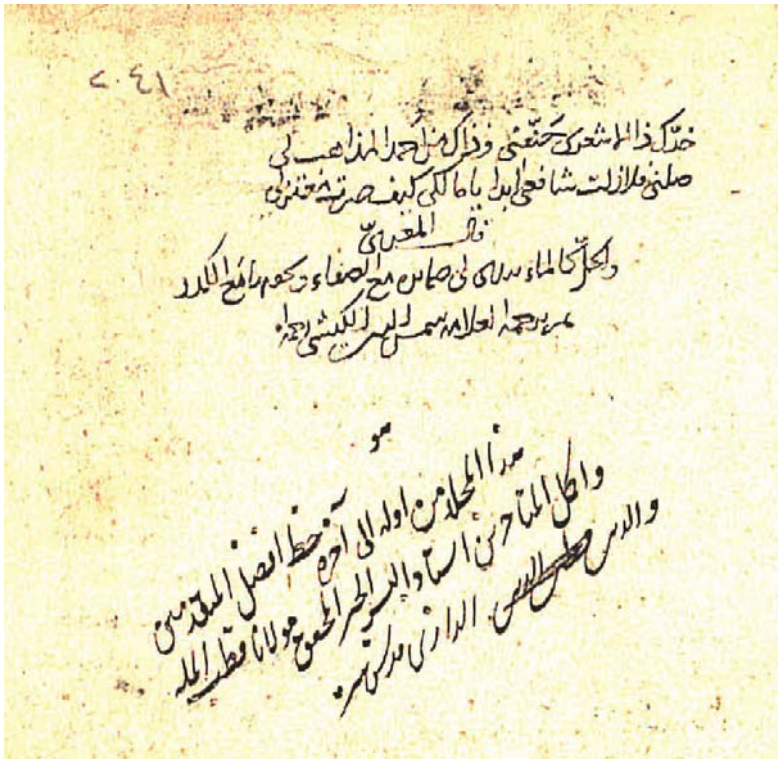 ٢٠٤١
خدك ذا الاشعري حنفني وذاك من احمد المذاهب لي
صلني فلا زلت شافعي ابدا يا مالكي كيف صرت معتزلي
قال المعري
والخل كالماء يبدي لي ضمايره مع الصفاء و مع الكدر
العلامة شمس الدين الكيشي رحمه
هو
هذا المجلد من اوله الى آخره خط افضل المتقدمين
واكمل المتاخرين استاد البشر الحبر المحقق مولانا قطب المله
والدين الرازي قدس سره